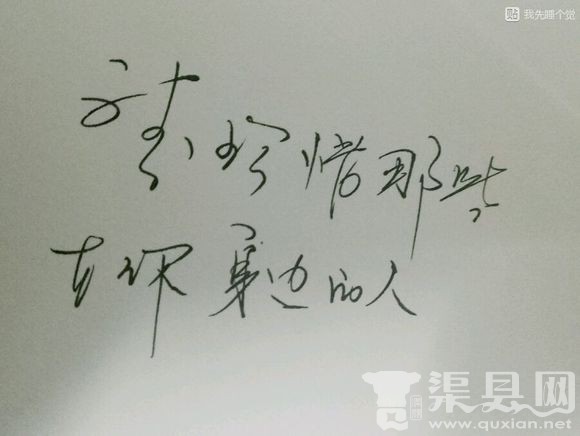 我先睡个觉
请珍惜那些
在你身边的人
渠县网
www.quxian.net